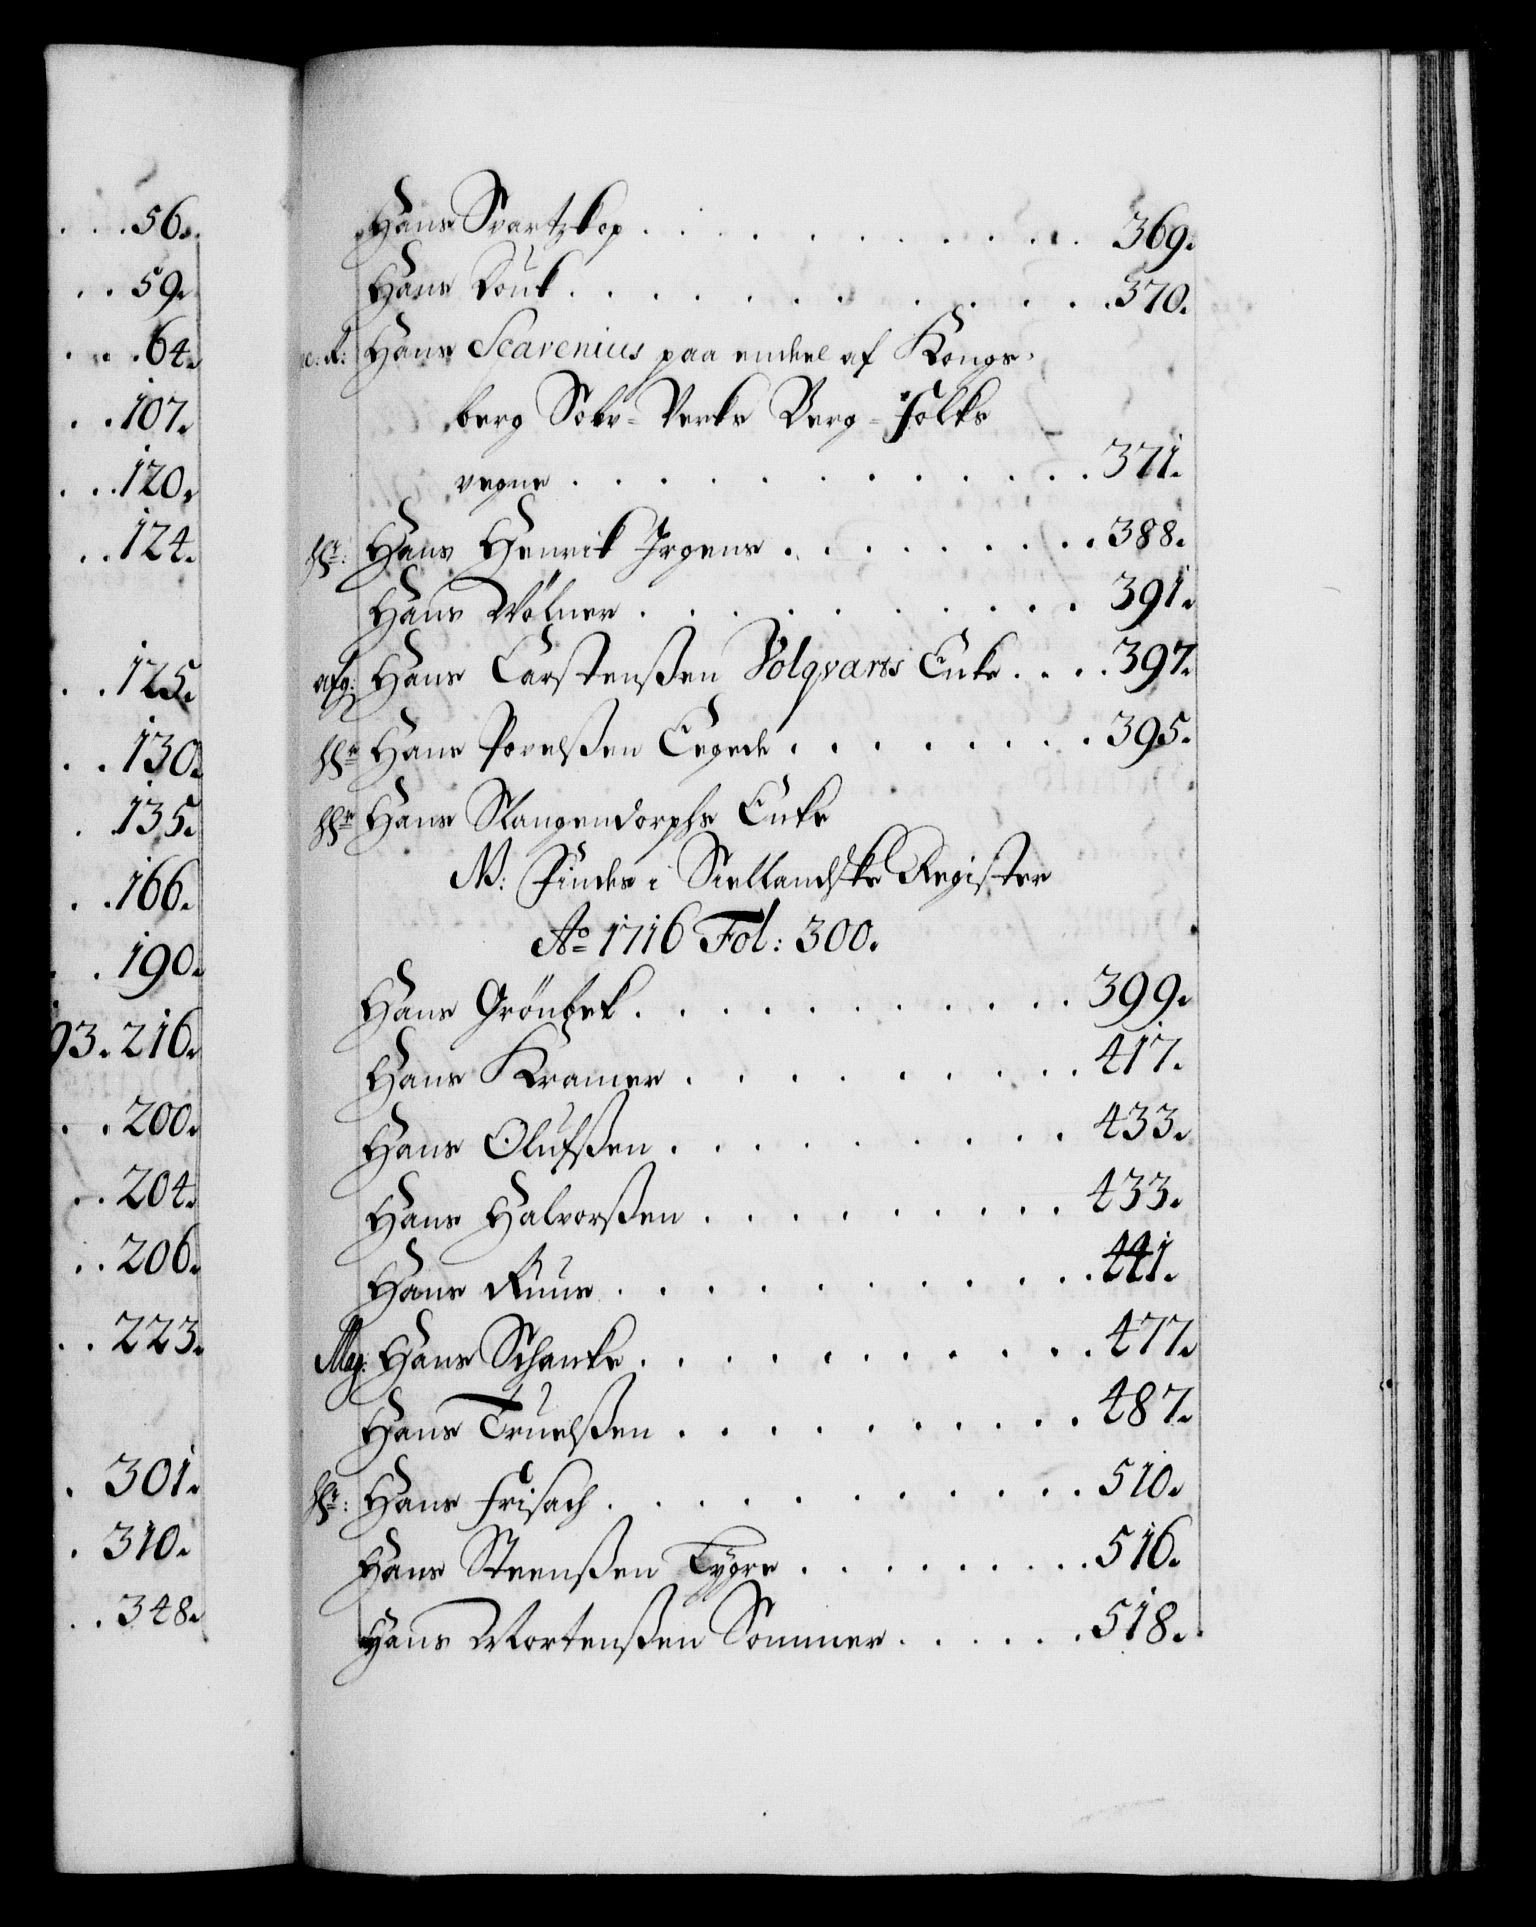 56.
59.
64.
107.
120.
124.
125.
130.
135.
166.
190.
93. 216.
200.
204.
206.
223.
301.
310.
348.
Hans Svartzkop . . . . . . . . . 369.
Hans Douk . . . . . . . . . . 370.
Hans Scavenius paa endeel af Kongs-
berg Sølv-Verks Berg-Folks
vegne . . . . . . . . . . 371.
Hr: Hans Henrik Irgens . . . . . . . 388.
Hans Wölner . . . . . . . . . 391.
afg: Hans Carstenßen Volqvarts Enke . . . . 397.
Hr Hans Povelßen Eegede . . . . . . . 395.
Hr Hans Slangendorphs Enke
NB: Findes i Siellandske Register
Ao 1716 Fol: 300.
Hans Grönbek . . . . . . . . . 399.
Hans Kramer . . . . . . . . 417.
Hans Olufßen . . . . . . . . 433.
Hans Halvorßen . . . . . . . . 433.
Hans Ruus . . . . . . . . . 441.
Mag: Hans Schanke . . . . . . . . . 477.
Hans Truelßen . . . . . . . . 487.
Hr: Hans Frisach . . . . . . . . . 510.
Hans Steenßen Tygre . . . . . . . 516.
Hans Mortenßen Sommer . . . . . . 518.